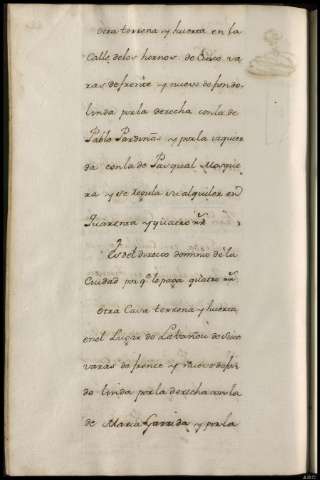 otra terrena y huerta en la
Calle delos hornos de Cinco va
ras de frente y nueve de fondo
linda por la derecha con la de
Pablo Pardiñas y por la izquier
da con la de Pasqual Mosque
ra y se regula su alquiler en
Quarenta y quatro rrs
Es del directo dominio de la
Ciudad por qe le paga quatro rrs
otra Casa terrena y huerta
en el Lugar do Labañou de Seis
varas de frente y nueve de fon
do linda por la derecha con la
de Maria Garrida y por la